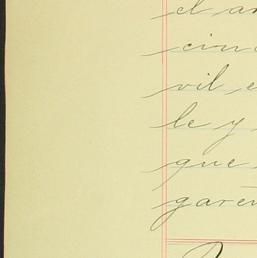 el an
cinc
vil e
le y
que
garen